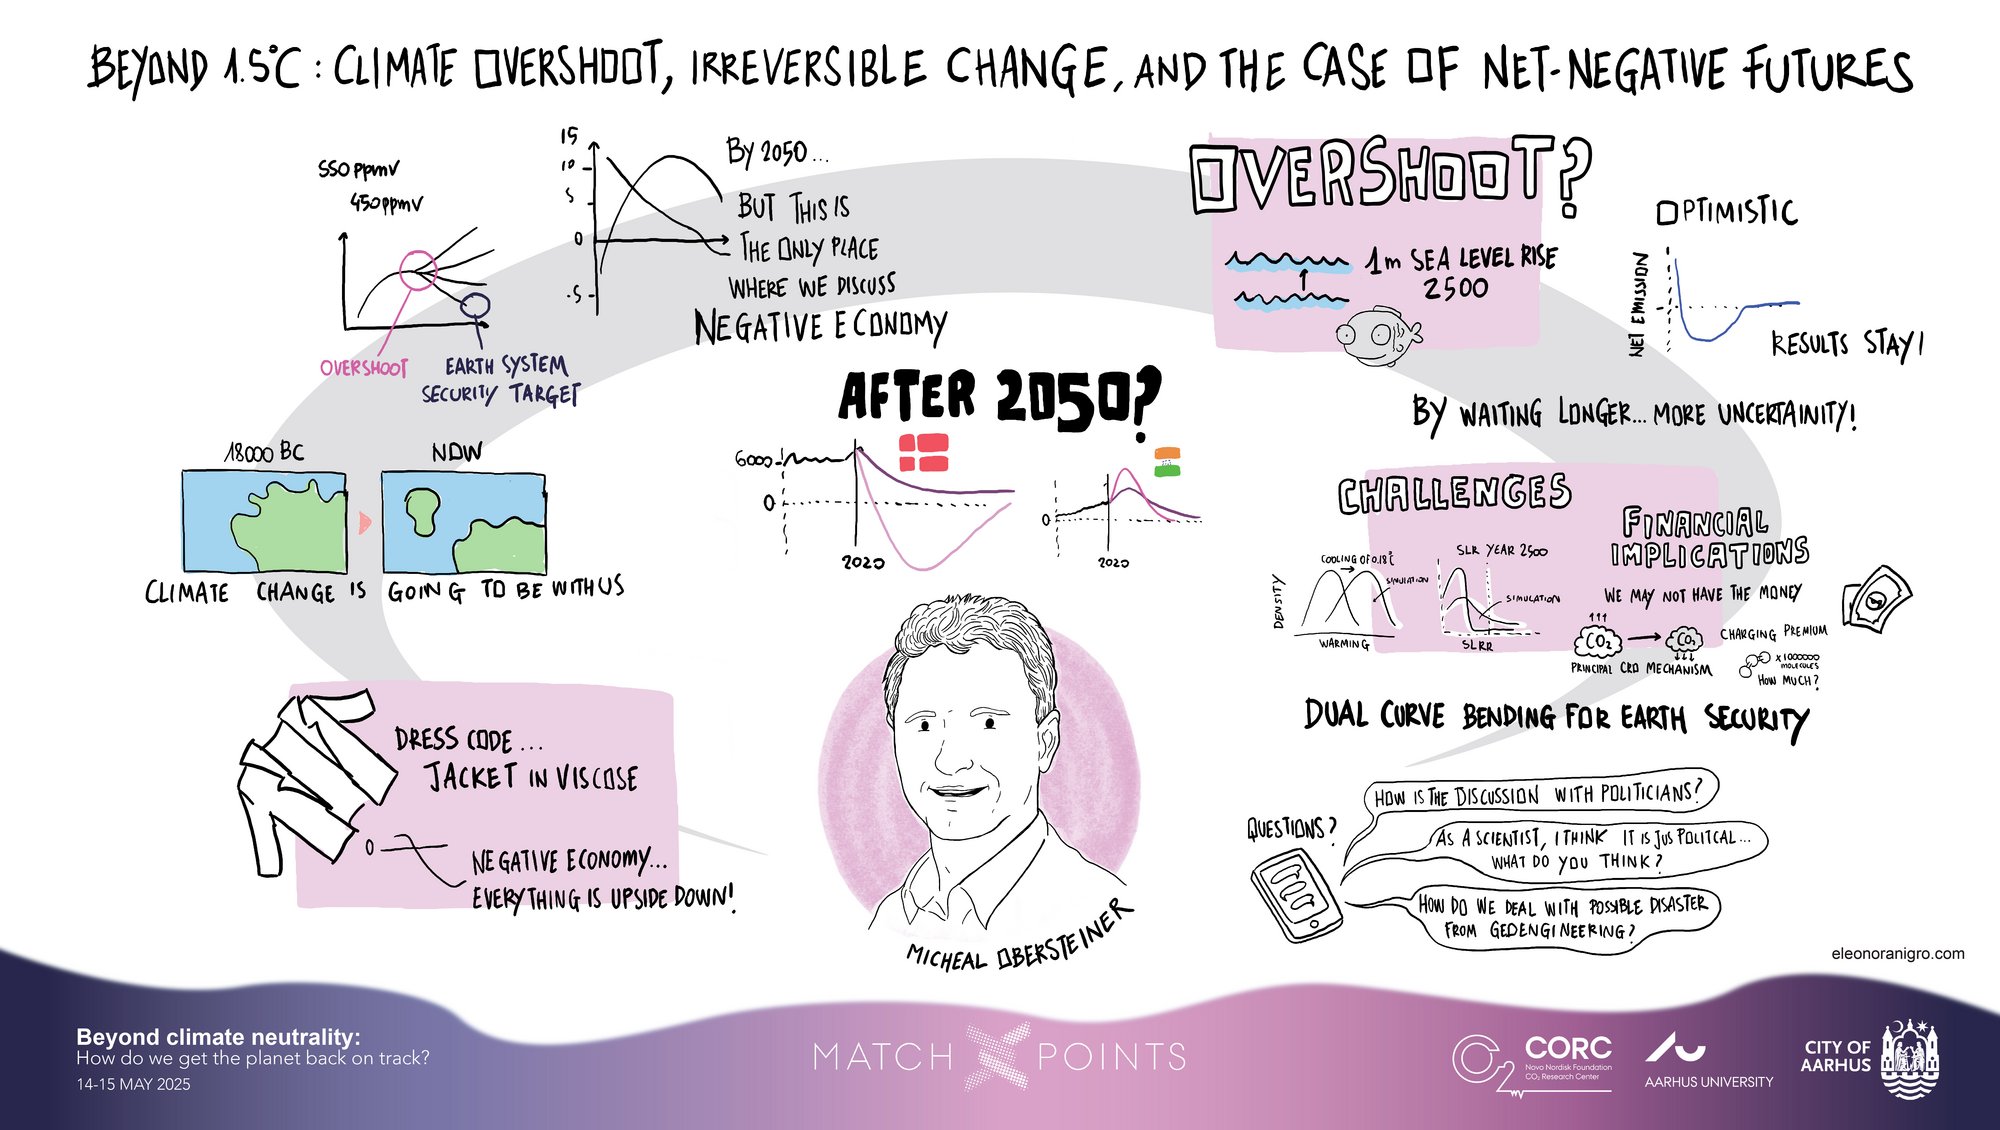 BEYOND 1.5°C : CLIMATE OVERSHOOT, IRREVERSIBLE CHANGE, AND THE CASE OF NET-NEGATIVE FUTURES
550 ppmv
450 ppmv
OVERSHOOT
EARTH SYSTEM
SECURITY TARGET
15
10
5
0
-5
BY 2050...
BUT THIS IS
THE ONLY PLACE
WHERE WE DISCUSS
NEGATIVE ECONOMY
18000 BC
NOW
CLIMATE CHANGE IS GOING TO BE WITH US
DRESS CODE...
JACKET IN VISCOSE
0
NEGATIVE ECONOMY...
EVERYTHING IS UPSIDE DOWN!
AFTER 2050?
6000
0
2020
0
2020
MICHEAL OBERSTEINER
OVERSHOOT?
1m SEA LEVEL RISE
2500
OPTIMISTIC
NET EMISSION
RESULTS STAY!
BY WAITING LONGER... MORE UNCERTAINITY!
CHALLENGES
COOLING OF 0.18°C
SIMULATION
DENSITY
WARMING
SLR YEAR 2500
SIMULATION
SLRR
FINANCIAL
IMPLICATIONS
WE MAY NOT HAVE THE MONEY
CO2
CO2
PRINCIPAL CRD MECHANISM
CHARGING PREMIUM
X1000000
MOLECULES
HOW MUCH?
DUAL CURVE BENDING FOR EARTH SECURITY
QUESTIONS?
HOW IS THE DISCUSSION WITH POLITICIANS?
AS A SCIENTIST, I THINK IT IS JUS POLITCAL...
WHAT DO YOU THINK?
HOW DO WE DEAL WITH POSSIBLE DISASTER
FROM GEOENGINEERING?
eleonoranigro.com
Beyond climate neutrality:
How do we get the planet back on track?
14-15 MAY 2025
MATCH POINTS
CO2
CORC
Novo Nordisk Foundation
CO₂ Research Center
AARHUS UNIVERSITY
CITY OF
AARHUS